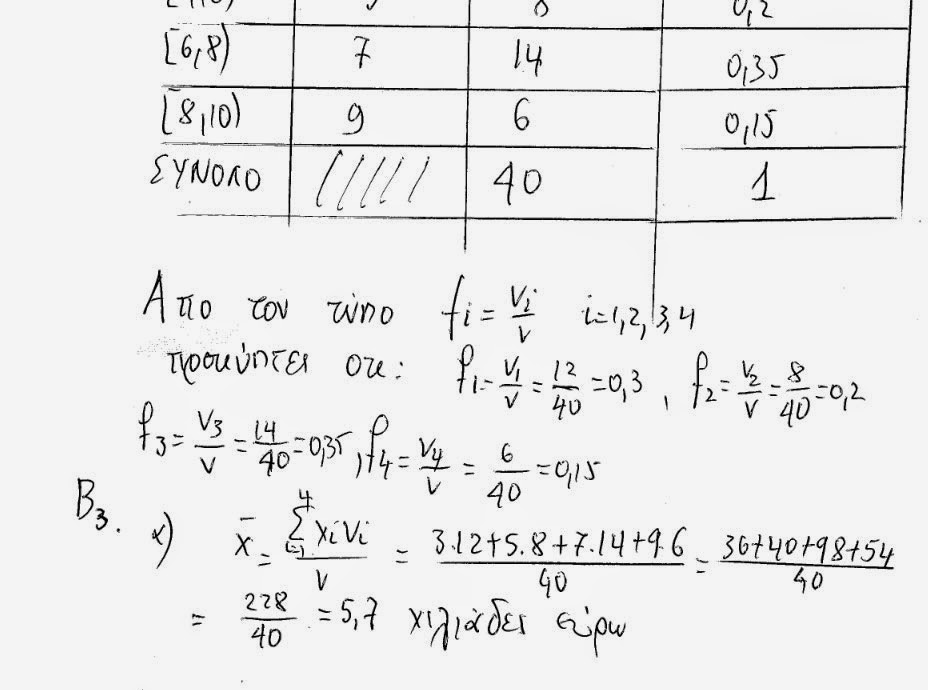 0,2
[6,8) 7 14 0,35
[8,10) 9 6 0,15
ΣΥΝΟΛΟ 40 1
Απο τον τύπο fi = vi/v i=1,2,3,4
προκύπτει οτι: f1 = v1/v = 12/40 = 0,3 , f2 = v2/v = 8/40 = 0,2
f3 = v3/v = 14/40 = 0,35 , f4 = v4/v = 6/40 = 0,15
B3. α) x̄ = Σ(i=1, 4) xivi / v = 3.12+5.8+7.14+9.6 / 40 = 36+40+98+54 / 40
= 228/40 = 5,7 χιλιάδες ευρω